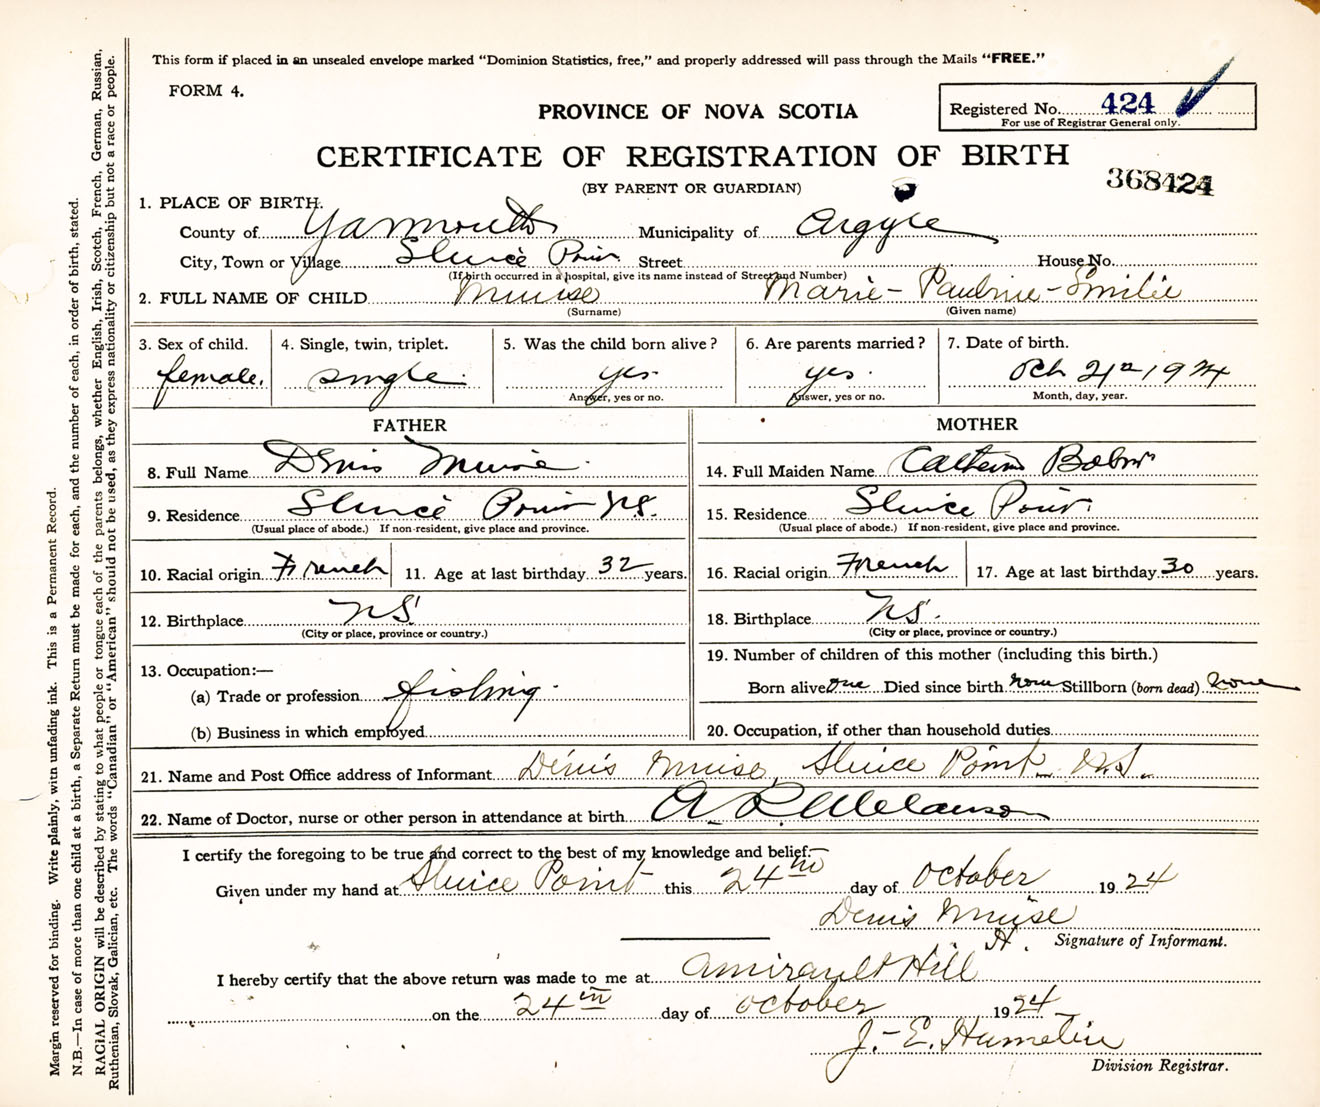 This form if placed in an unsealed envelope marked "Dominion Statistics, free," and properly addressed will pass through the Mails "FREE."
FORM 4.
PROVINCE OF NOVA SCOTIA
Registered No. 424
For use of Registrar General only.
CERTIFICATE OF REGISTRATION OF BIRTH
(BY PARENT OR GUARDIAN)
368424
1. PLACE OF BIRTH.
County of Yarmouth Municipality of Argyle
City, Town or Village Sluice Point Street House No.
(If birth occurred in a hospital, give its name instead of Street and Number)
2. FULL NAME OF CHILD Muise Marie-Pauline-Emilie
(Surname) (Given name)
3. Sex of child. 4. Single, twin, triplet. 5. Was the child born alive? 6. Are parents married? 7. Date of birth.
female. single. yes. yes. Oct 1924
Answer, yes or no. Answer, yes or no. Month, day, year.
FATHER MOTHER
8. Full Name Denis Muise 14. Full Maiden Name
9. Residence Sluice Point NS. 15. Residence Sluice Point.
(Usual place of abode.) If non-resident, give place and province. (Usual place of abode.) If non-resident, give place and province.
10. Racial origin French 11. Age at last birthday 32 years. 16. Racial origin French 17. Age at last birthday 30 years.
12. Birthplace NS. 18. Birthplace NS.
(City or place, province or country.) (City or place, province or country.)
13. Occupation:— 19. Number of children of this mother (including this birth.)
(a) Trade or profession fishing. Born alive one Died since birth none Stillborn (born dead) None
(b) Business in which employed 20. Occupation, if other than household duties
21. Name and Post Office address of Informant Denis Muise, Sluice Point N.S.
22. Name of Doctor, nurse or other person in attendance at birth A. R. Melanson
I certify the foregoing to be true and correct to the best of my knowledge and belief.
Given under my hand at Sluice Point this 24th day of October 1924
Denis Muise
H. Signature of Informant.
I hereby certify that the above return was made to me at Amirault Hill
on the 24th day of October 1924
J.-E. Hamelin
Division Registrar.
Margin reserved for binding. Write plainly, with unfading ink. This is a Permanent Record.
N.B.—In case of more than one child at a birth, a Separate Return must be made for each, and the number of each, in order of birth, stated.
RACIAL ORIGIN will be described by stating to what people or tongue each of the parents belongs, whether English, Irish, Scotch, French, German, Russian,
Ruthenian, Slovak, Galician, etc. The words "Canadian" or "American" should not be used, as they express nationality or citizenship but not a race or people.